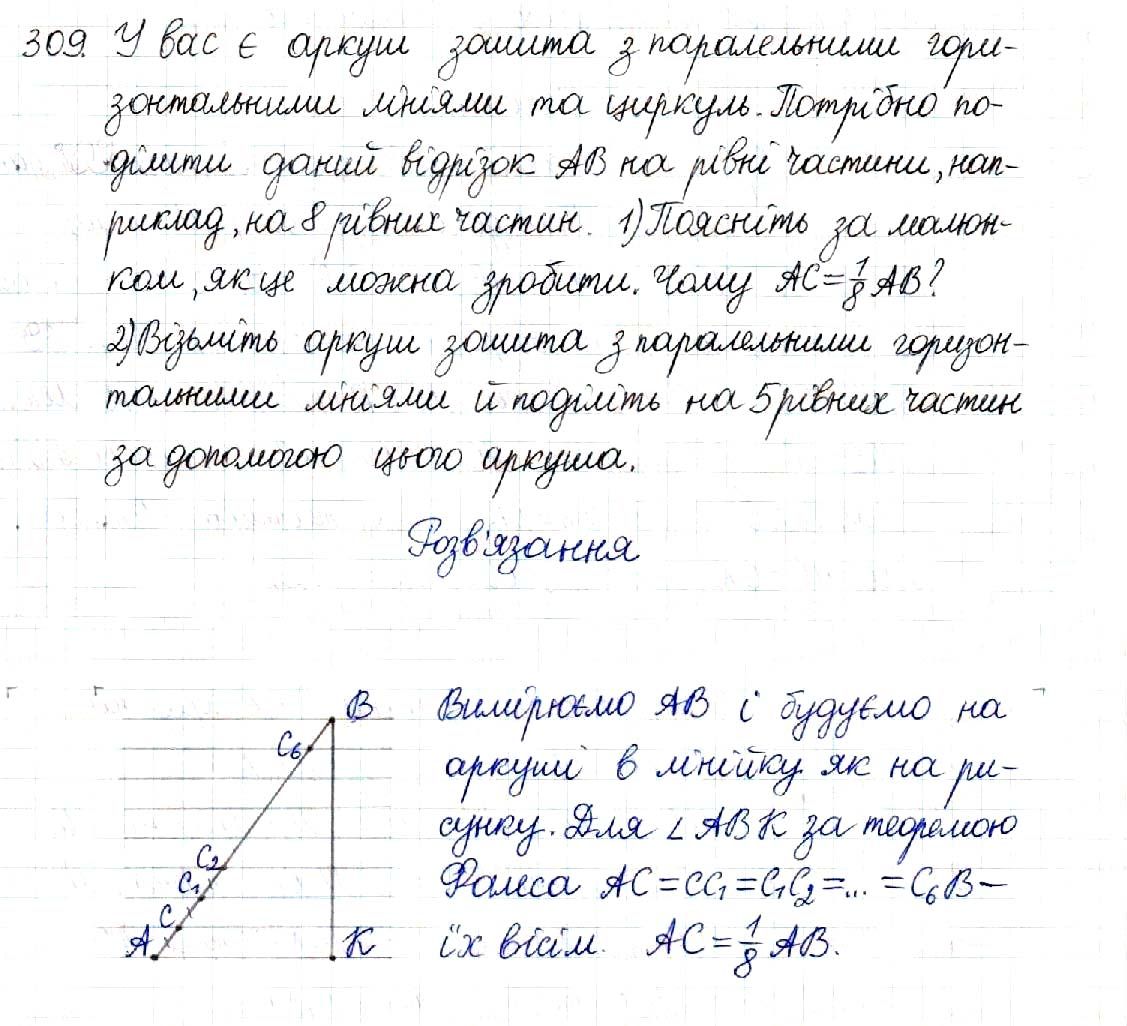 309. У вас є аркуш зошита з паралельними гори-
зонтальними лініями та циркуль. Потрібно по-
ділити даний відрізок АВ на рівні частини, нап-
риклад, на 8 рівних частин. 1) Поясніть за малюн-
ком, як це можна зробити. Чому АС=1/8 АВ?
2) Візьміть аркуш зошита з паралельними горизон-
тальними лініями й поділіть на 5 рівних частин
за допомогою цього аркуша.
Розв'язання
B
C₆
C₂
C₁
C
A
K
Вимірюємо АВ і будуємо на
аркуші в лінійку як на ри-
сунку. Для ∠ АВК за теоремою
Фалеса АС=СС₁=С₁С₂=...=С₆В –
їх вісім. АС=1/8 АВ.